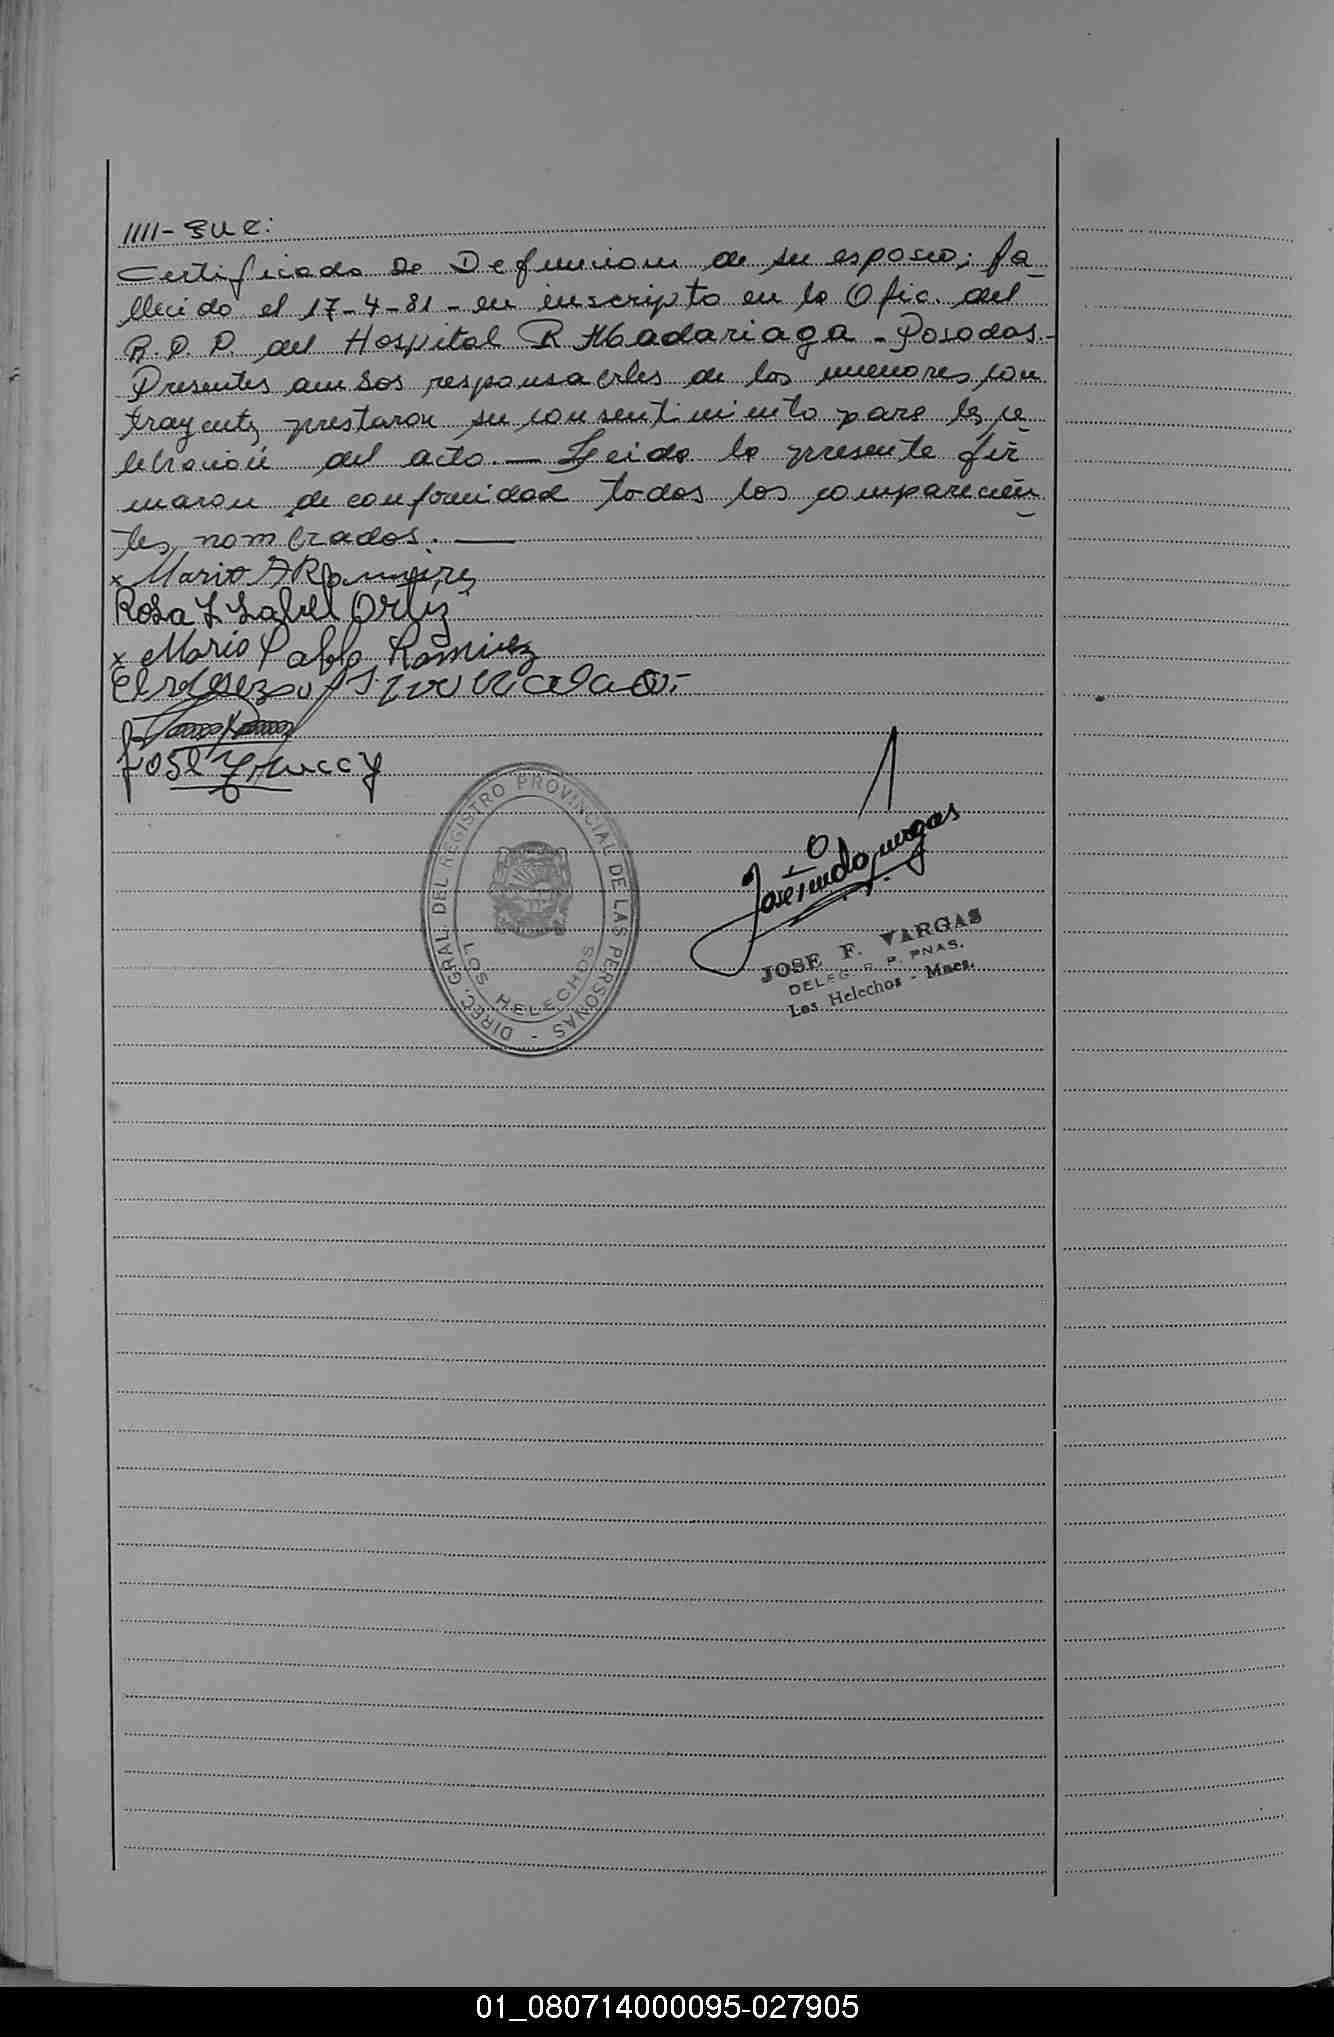 1111-gue:
Certificado de Defuncion de su esposo; fa_
llecido el 17-4-81-en inscripto en la Ofic. del
R.P.P. del Hospital R Madariaga - Posadas.-
Presentes ambos responsables de los menores con
trayentes prestaron su consentimiento para la ce
lebración del acto.— Leida la presente fir
maron de conformidad todos los comparecien
tes nombrados. —
x Mario A Ramirez
Rosa Isabel Ortiz
x Mario Pablo Ramirez
José
JOSE F. VARGAS
DELEG. R. P. PNAS.
Los Helechos - Mnes.
DIREC. GRAL. DEL REGISTRO PROVINCIAL DE LAS PERSONAS -
LOS HELECHOS
01_080714000095-027905